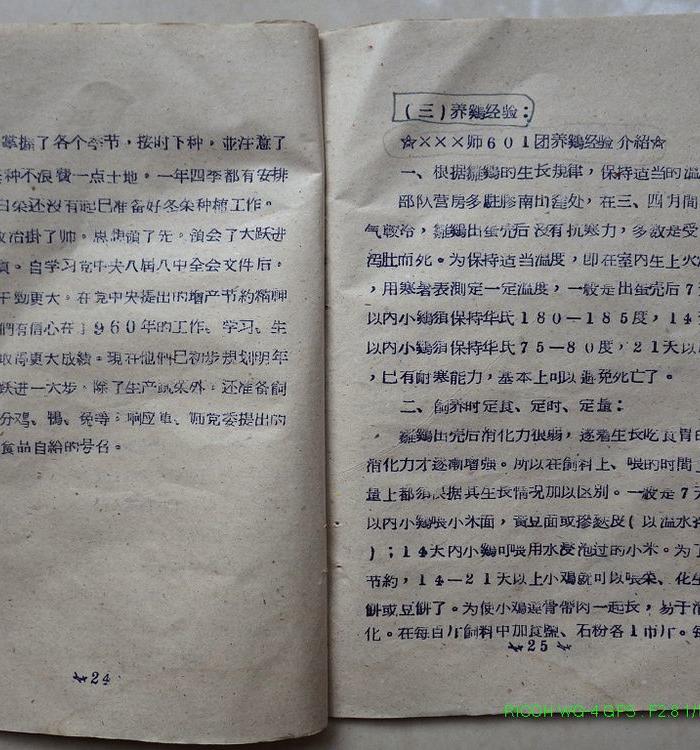 掌握了各个季节，按时下种，並注意了
种不浪費一点土地。一年四季都有安排
白菜还没有起已准备好冬菜种植工作。
政治掛了帅。思想領了先。領会了大跃进
自学习党中央八屆八中全会文件后，
干劲更大。在党中央提出的增产节約精神
們有信心在1960年的工作、学习、生
取得更大成績。現在他們已初步規划明年
跃进一大步，除了生产蔬菜外，还准备飼
分鸡、鴨、兔等；响应軍、师党委提出的
食品自給的号召。
24
(三)养鷄经验：
☆×××师601团养鷄经验介紹☆
一、根据雛鷄的生长規律，保持适当的温
部队营房多駐膠南山窪处，在三、四月間
气較冷，雛鷄出蛋壳后沒有抗寒力，多数是受
泻肚而死。为保持适当温度，即在室内生上火
，用寒暑表測定一定温度，一般是出蛋壳后7
以内小鷄須保持华氏180—185度，14
以内小鷄須保持华氏75—80度，21天以
，已有耐寒能力，基本上可以避免死亡了。
二、飼养时定食、定时、定量：
雛鷄出壳后消化力很弱，逐着生长吃食胃
消化力才逐漸增强。所以在飼料上、喂的时間
量上都須依据其生长情况加以区别。一般是7
以内小鷄喂小米面，黃豆面或摻麩皮(以温水
)；14天内小鷄可喂用水浸泡过的小米。为了
节約，14—21天以上小鷄就可以喂菜、化生
餅或豆餅了。为使小鷄連骨帶肉一起长，易于消
化。在每百斤飼料中加食鹽、石粉各1市斤。每
25
RICOH WG-4 GPS . F2.8 1/